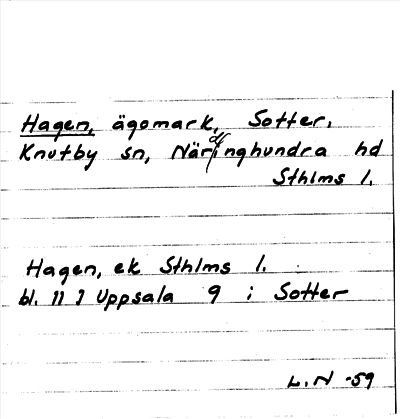 Hagen, ägomark, Sotter,
Knutby sn, Närdinghundra hd
Sthlms l.
Hagen, ek Sthlms l.
bl. 11 I Uppsala 9 i Sotter
L.N -59